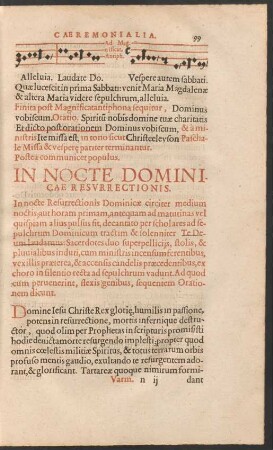 CAEREMONIALIA.
99
Ad Mag
nificat
Antiph.
Alleluia. Laudate Do. Vespere autem sabbati.
Quæ lucescit in prima Sabbati: venit Maria Magdalenæ
& altera Maria videre sepulchrum, alleluia.
Finita post Magnificat antiphona sequitur, Dominus
vobiscum. Oratio. Spiritũ nobis domine tuæ charitatis
Et dicto post orationem Dominus vobiscum, & à mi
nistris Ite missa est, in tono sicut Christe eleyson Pascha
le Missa & vesperę pariter terminantur.
Postea communicet populus.
IN NOCTE DOMINI-
CAE RESVRRECTIONIS.
In nocte Resurrectionis Dominicæ circiter medium
noctis aut horam primam, antequam ad matutinas vel
quispiam alius pulsus fit, decantato per scholares ad se
pulchrum Dominicum tractim & solenniter Te De-
um laudamus: Sacerdotes duo superpelliciis, stolis, &
pluvialibus induti, cum ministris incensum ferentibus,
vexillis præterea, & accensis candelis præcedentibus, ex
choro in silentio recta ad sepulchrum vadunt. Ad quod
cum pervenerint, flexis genibus, sequentem Oratio-
nem dicunt.
Domine Iesu Christe Rex glorię, humilis in passione,
potens in resurrectione, mortis infernique destru
ctor, quod olim per Prophetas in scripturis promisisti
hodie devicta morte resurgendo implesti: propter quod
omnis cœlestis militiæ Spiritus, & totus terrarum orbis
profuso mentis gaudio, exultando te resurgentem ador-
ant, & glorificant. Tartareæ quoque nimirum formi-
Varm. n ij dant